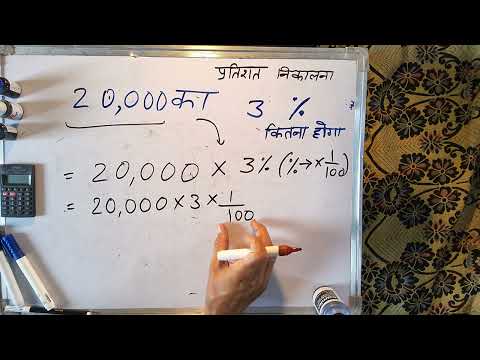 प्रतिशत निकालना
20,000 का 3 %
कितना होगा
= 20,000 × 3% (% → × 1/100)
= 20,000 × 3 × 1/100